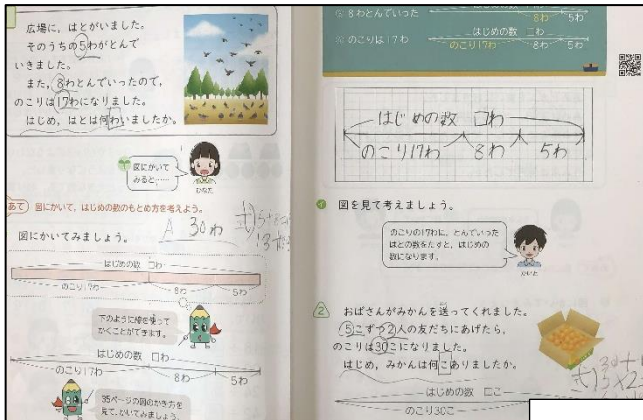 広場に，はとがいました。
そのうちの5わがとんで
いきました。
また，8わとんでいったので，
のこりは17わになりました。
はじめ，はとは何わいましたか。
図にかいて
みると，……
ひなた
あて
図にかいて，はじめの数のもとめ方を考えよう。
図にかいてみましょう。
A 30わ
はじめの数 □わ
のこり17わ
8わ
5わ
下のように線を使って
かくことができます。
はじめの数 □わ
のこり17わ
8わ
5わ
35ページの図のかき方を
見て，かいてみましょう。
8わとんでいった
8わ
5わ
のこりは17わ
はじめの数 □わ
のこり17わ
8わ
5わ
はじめの数 □わ
のこり17わ
8わ
5わ
図を見て考えましょう。
のこりの17わに，とんでいった
はとの数をたすと，はじめの
数になります。
かいと
2
おばさんがみかんを送ってくれました。
5こずつ2人の友だちにあげたら，
のこりは30こになりました。
はじめ，みかんは何こありましたか。
はじめの数 □こ
のこり30こ